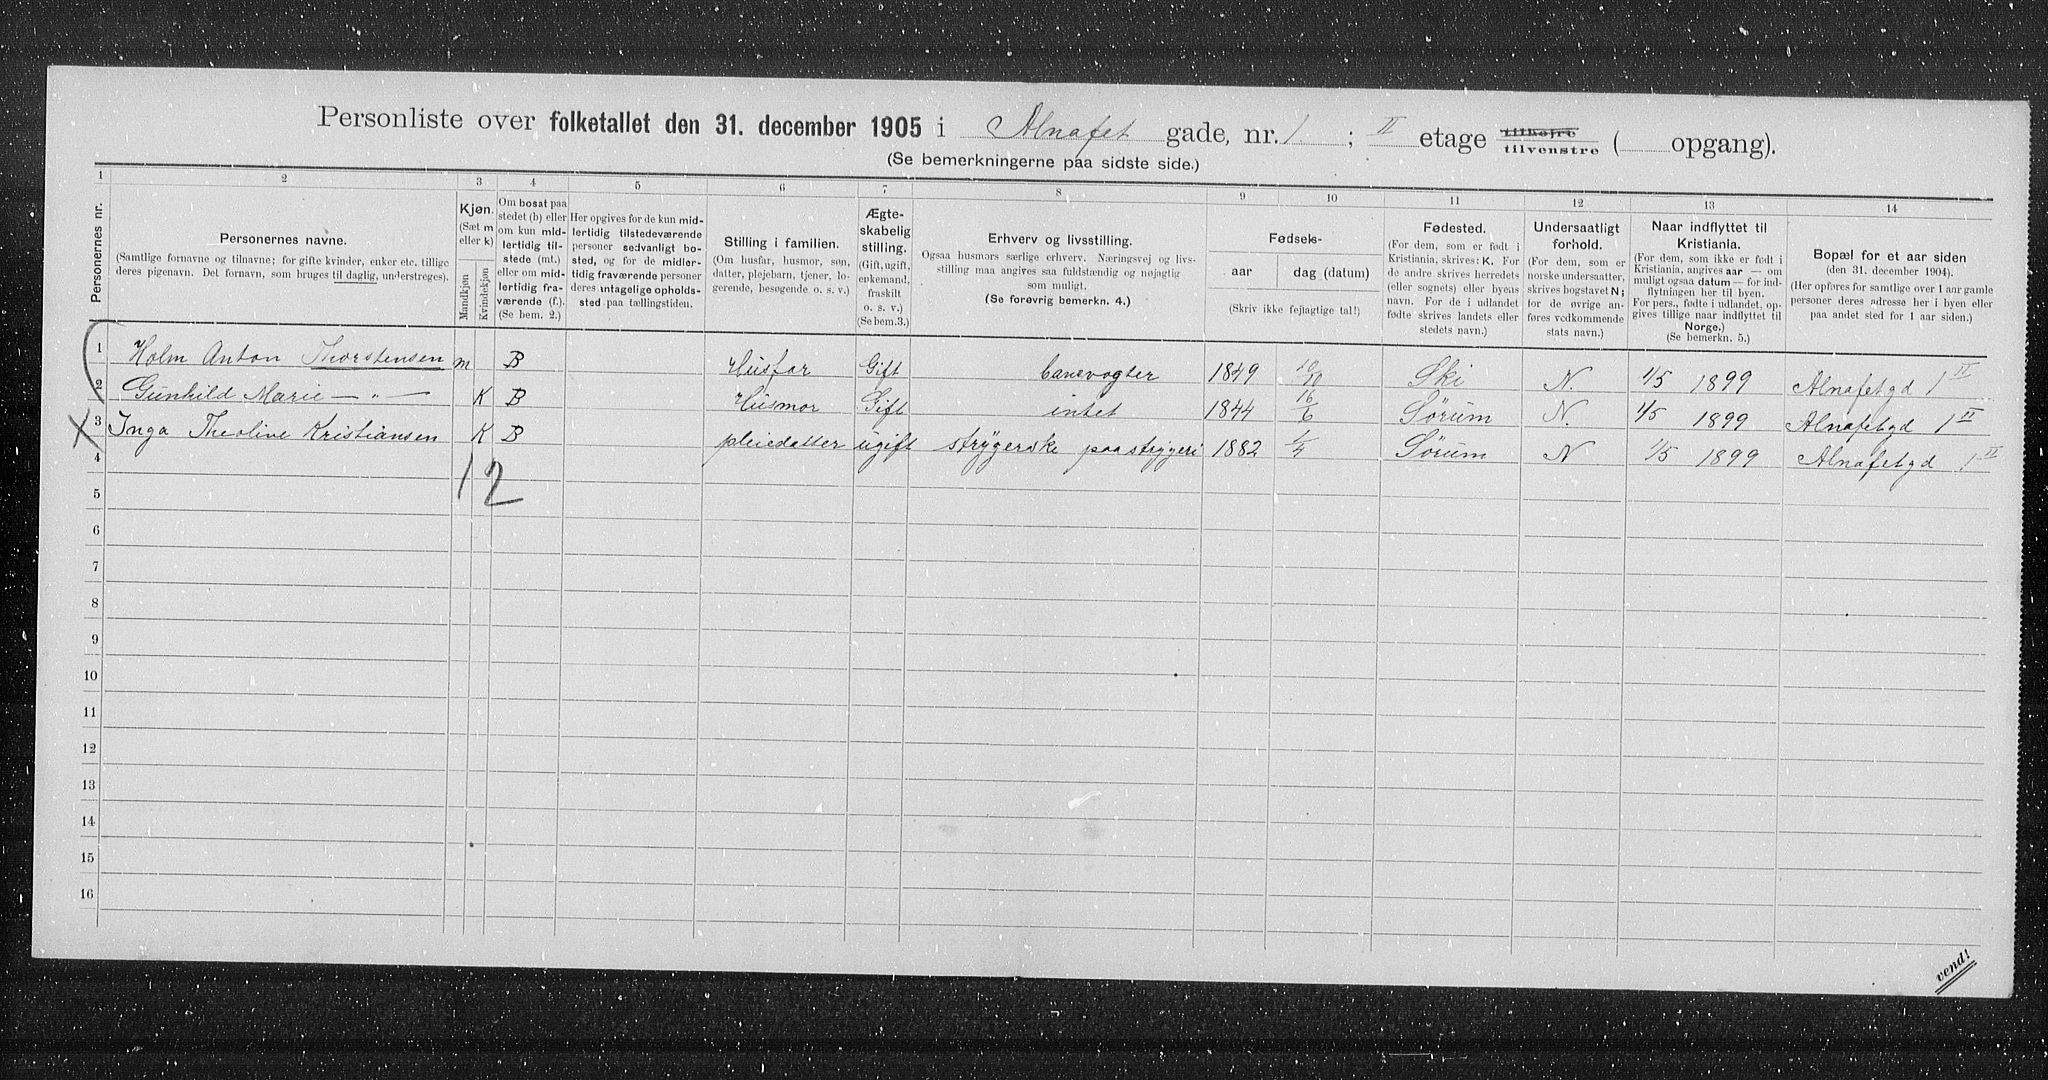 Personliste over folketallet den 31. december 1905 i Alnafet gade, nr. 1 ; II etage tilhøjre tilvenstre ( opgang).
(Se bemerkningerne paa sidste side.)
1 2 3 4 5 6 7 8 9 10 11 12 13 14
Personernes nr.
Personernes navne.
(Samtlige fornavne og tilnavne; for gifte kvinder, enker etc. tillige
deres pigenavn. Det fornavn, som bruges til daglig, understreges).
Kjøn.
(Sæt m
eller k)
Mandkjøn
Kvindekjøn
Om bosat paa
stedet (b) eller
om kun mid-
lertidig til-
stede (mt.)
eller om mid-
lertidig fra-
værende (f.).
(Se bem. 2.)
Her opgives for de kun mid-
lertidig tilstedeværende
personer sedvanligt bo-
sted, og for de midler-
tidig fraværende personer
deres antagelige opholds-
sted paa tællingstiden.
Stilling i familien.
(Om husfar, husmor, søn,
datter, plejebarn, tjener, lo-
gerende, besøgende o. s. v.)
Ægte-
skabelig
stilling.
(Gift, ugift,
enkemand,
fraskilt
o. s. v.)
(Se bem. 3.)
Erhverv og livsstilling.
Ogsaa husmors særlige erhverv. Næringsvej og livs-
stilling maa angives saa fuldstændig og nøjagtig
som muligt.
(Se forøvrig bemerkn. 4.)
Fødsels-
aar
dag (datum)
(Skriv ikke fejlagtige tal!)
Fødested.
(For dem, som er født i
Kristiania, skrives: K. For
de andre skrives herredets
(eller sognets) eller byens
navn. For de i udlandet
fødte skrives landets eller
stedets navn.)
Undersaatligt
forhold.
(For dem, som er
norske undersaatter,
skrives bogstavet N;
for de øvrige an-
føres vedkommende
stats navn.)
Naar indflyttet til
Kristiania.
(For dem, som ikke er født i
Kristiania, angives aar — om
muligt ogsaa datum — for ind-
flytningen her til byen.
For pers., fødte i udlandet, op-
gives tillige naar indflyttet til
Norge.)
(Se bemerkn. 5.)
Bopæl for et aar siden
(den 31. december 1904).
(Her opføres for samtlige over 1 aar gamle
personer deres adresse her i byen eller
paa andet sted for 1 aar siden.)
1 Holm Anton Thorstensen m B Husfar Gift banevogter 1849 10/10 Ski N. 1/5 1899 Alnafetgd 1 II
2 Gunhild Marie — " — K B Husmor Gift intet 1844 16/6 Sørum N. 1/5 1899 Alnafetgd 1 II
X 3 Inga Theoline Kristiansen K B pleiedatter ugift strygerske paa strygeri 1882 Sørum N 1/5 1899 Alnafetgd 1 II
4
1 2
5
6
7
8
9
10
11
12
13
14
15
16
vend!